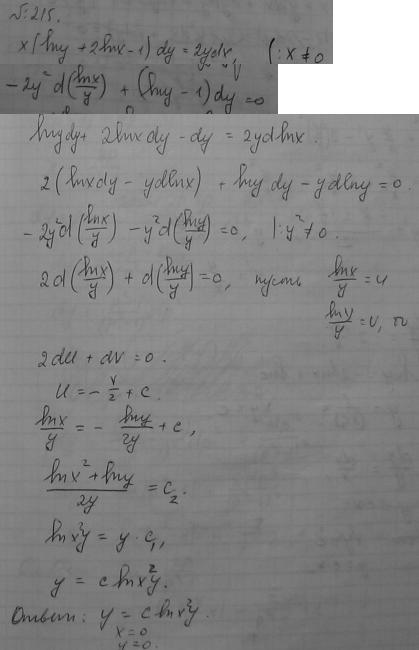 № 215.
x(lny + 2lnx - 1)dy = 2ydx, (: x ≠ 0
- 2y² d(lnx/y) + (lny - 1)dy = 0
lnydy + 2lnxdy - dy = 2ydlnx.
2(lnxdy - ydlnx) + lny dy - ydlny = 0.
- 2y²d(lnx/y) - y²d(lny/y) = 0, |: y² ≠ 0.
2d(lnx/y) + d(lny/y) = 0, пусть lnx/y = u
lny/y = v, то
2du + dv = 0.
u = - v/2 + c.
lnx/y = - lny/2y + c,
lnx² + lny/2y = c₂.
lnx²y = y · c₁,
y = c lnx²y.
Ответ: y = c lnx²y.
x = 0
y = 0.